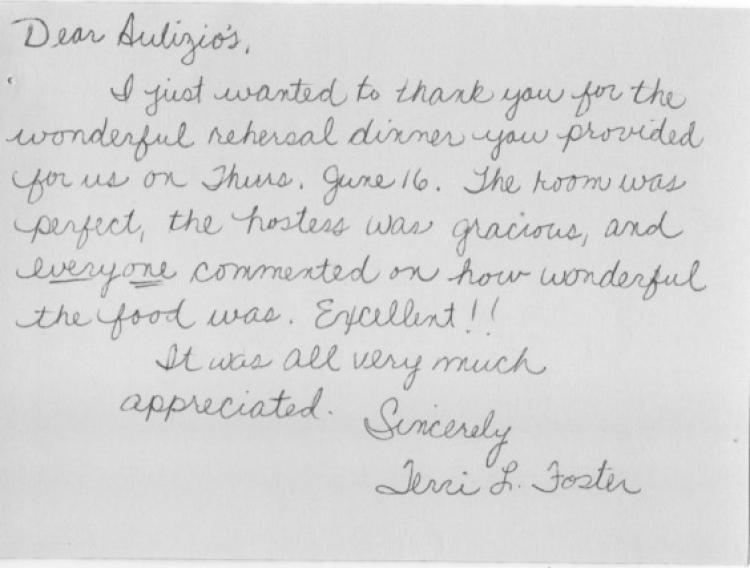 Dear Aulizio's,
I just wanted to thank you for the
wonderful rehersal dinner you provided
for us on Thurs. June 16. The room was
perfect, the hostess was gracious, and
everyone commented on how wonderful
the food was. Excellent!!
It was all very much
appreciated.
Sincerely
Terri L. Foster